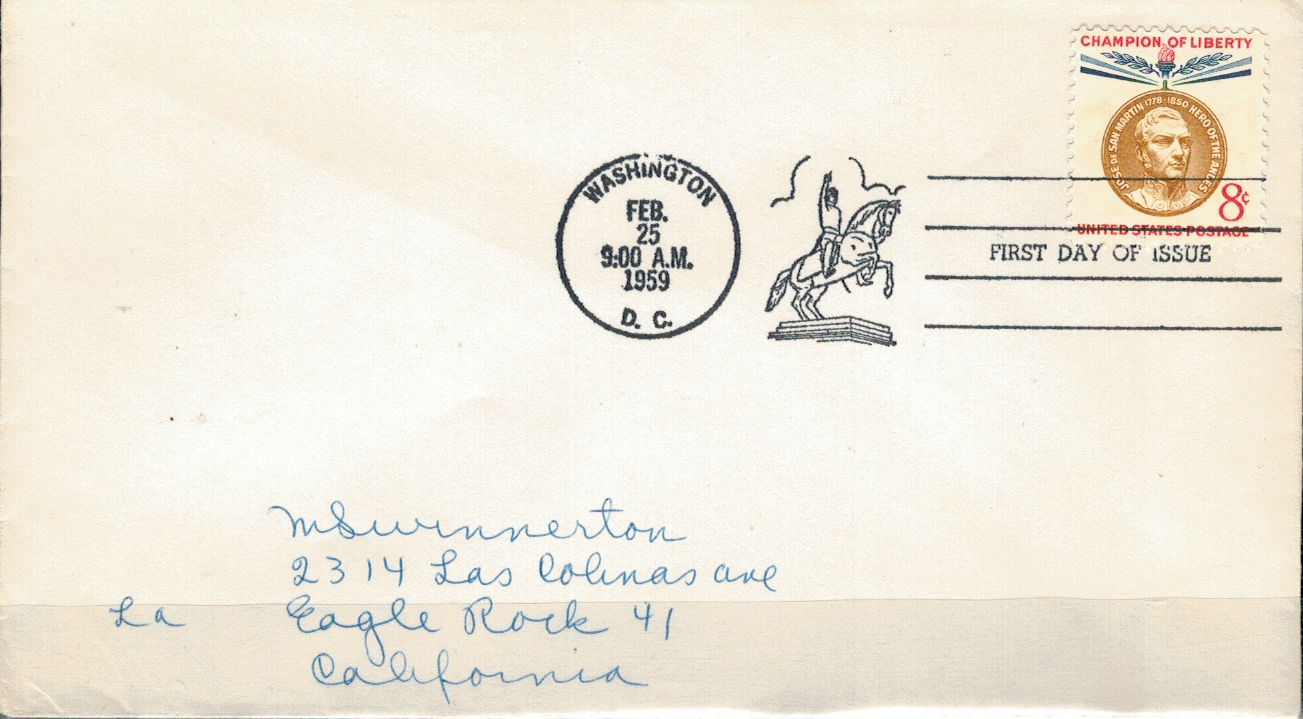 CHAMPION OF LIBERTY
JOSE DE SAN MARTIN 1778-1850 HERO OF THE ANDES
8¢
UNITED STATES POSTAGE
WASHINGTON
FEB.
25
9:00 A.M.
1959
D. C.
FIRST DAY OF ISSUE
M Swinnerton
2314 Las Colinas ave
La Eagle Rock 41
California